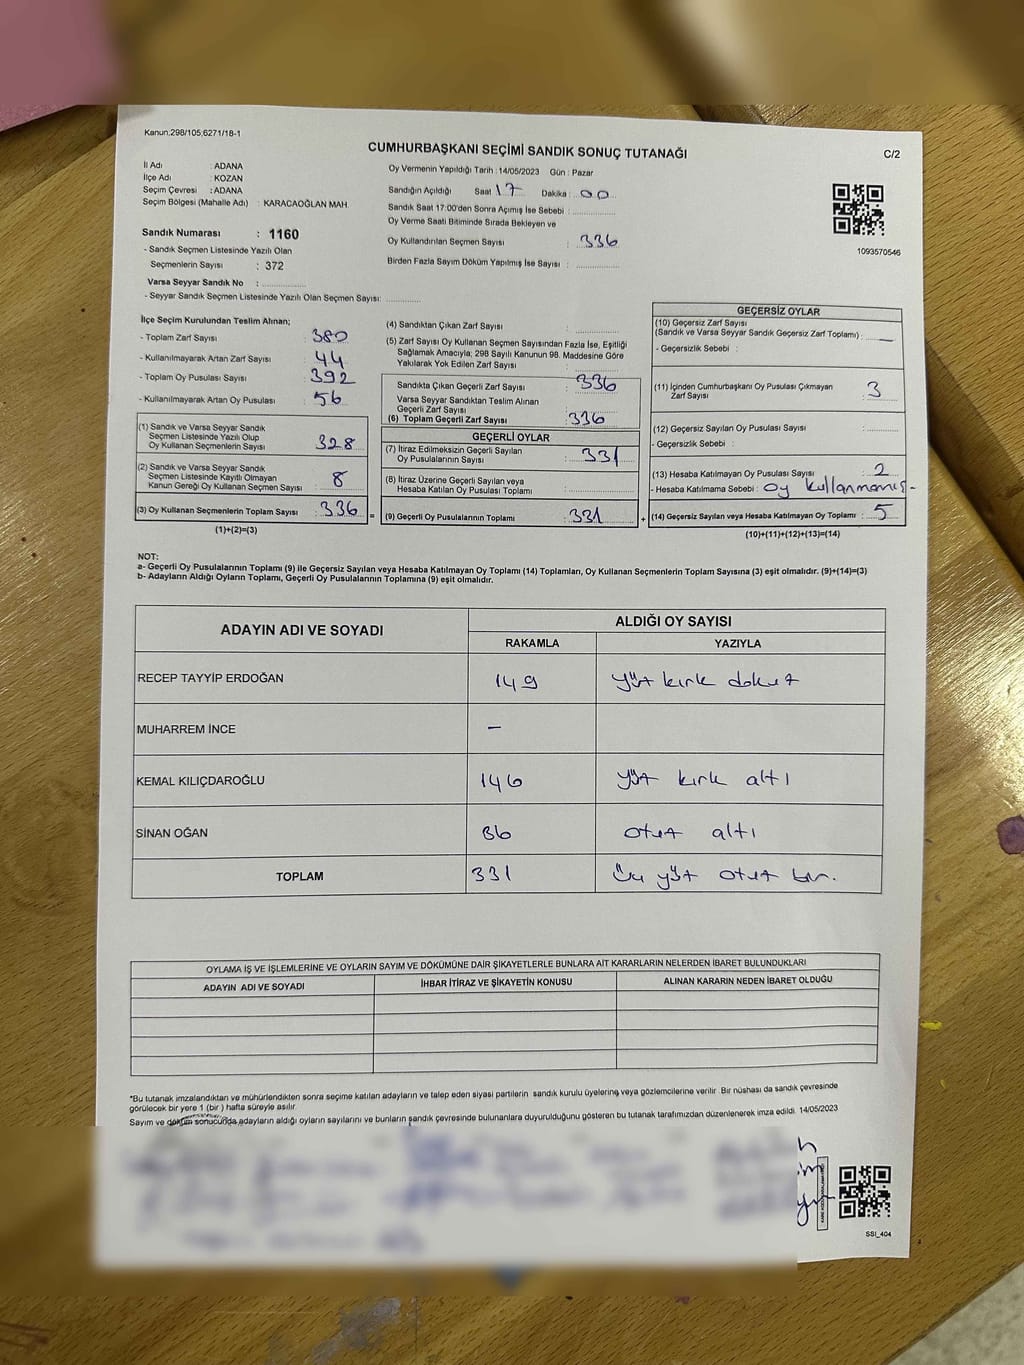 Kanun:298/105;6271/18-1
CUMHURBAŞKANI SEÇİMİ SANDIK SONUÇ TUTANAĞI
C/2
İl Adı : ADANA
İlçe Adı : KOZAN
Seçim Çevresi : ADANA
Seçim Bölgesi (Mahalle Adı) : KARACAOĞLAN MAH.
Oy Vermenin Yapıldığı Tarih : 14/05/2023 Gün : Pazar
Sandığın Açıldığı Saat 17 Dakika : 00
Sandık Saat 17:00'den Sonra Açımış İse Sebebi : ..............
Oy Verme Saati Bitiminde Sırada Bekleyen ve
Oy Kullandırılan Seçmen Sayısı : 336
Birden Fazla Sayım Döküm Yapılmış İse Sayısı : ..............
1093570546
Sandık Numarası : 1160
- Sandık Seçmen Listesinde Yazılı Olan
Seçmenlerin Sayısı : 372
Varsa Seyyar Sandık No : ..............
- Seyyar Sandık Seçmen Listesinde Yazılı Olan Seçmen Sayısı: ..............
İlçe Seçim Kurulundan Teslim Alınan;
- Toplam Zarf Sayısı : 380
- Kullanılmayarak Artan Zarf Sayısı : 44
- Toplam Oy Pusulası Sayısı : 392
- Kullanılmayarak Artan Oy Pusulası : 56
(1) Sandık ve Varsa Seyyar Sandık
Seçmen Listesinde Yazılı Olup
Oy Kullanan Seçmenlerin Sayısı : 328
(2) Sandık ve Varsa Seyyar Sandık
Seçmen Listesinde Kayıtlı Olmayan
Kanun Gereği Oy Kullanan Seçmen Sayısı : 8
(3) Oy Kullanan Seçmenlerin Toplam Sayısı : 336
(1)+(2)=(3)
=
(4) Sandıktan Çıkan Zarf Sayısı : ..............
(5) Zarf Sayısı Oy Kullanan Seçmen Sayısından Fazla İse, Eşitliği
Sağlamak Amacıyla; 298 Sayılı Kanunun 98. Maddesine Göre
Yakılarak Yok Edilen Zarf Sayısı : ..............
Sandıkta Çıkan Geçerli Zarf Sayısı : 336
Varsa Seyyar Sandıktan Teslim Alınan
Geçerli Zarf Sayısı : ..............
(6) Toplam Geçerli Zarf Sayısı : 336
GEÇERLİ OYLAR
(7) İtiraz Edilmeksizin Geçerli Sayılan
Oy Pusulalarının Sayısı : 331
(8) İtiraz Üzerine Geçerli Sayılan veya
Hesaba Katılan Oy Pusulası Toplamı : ..............
(9) Geçerli Oy Pusulalarının Toplamı : 331
+
GEÇERSİZ OYLAR
(10) Geçersiz Zarf Sayısı
(Sandık ve Varsa Seyyar Sandık Geçersiz Zarf Toplamı) : —
- Geçersizlik Sebebi :
(11) İçinden Cumhurbaşkanı Oy Pusulası Çıkmayan
Zarf Sayısı : 3
(12) Geçersiz Sayılan Oy Pusulası : ..............
- Geçersizlik Sebebi :
(13) Hesaba Katılmayan Oy Pusulası Sayısı : 2
- Hesaba Katılmama Sebebi : Oy kullanmamış-
(14) Geçersiz Sayılan veya Hesaba Katılmayan Oy Toplamı : 5
(10)+(11)+(12)+(13)=(14)
NOT:
a- Geçerli Oy Pusulalarının Toplamı (9) ile Geçersiz Sayılan veya Hesaba Katılmayan Oy Toplamı (14) Toplamları, Oy Kullanan Seçmenlerin Toplam Sayısına (3) eşit olmalıdır. (9)+(14)=(3)
b- Adayların Aldığı Oyların Toplamı, Geçerli Oy Pusulalarının Toplamına (9) eşit olmalıdır.
ADAYIN ADI VE SOYADI ALDIĞI OY SAYISI
RAKAMLA YAZIYLA
RECEP TAYYİP ERDOĞAN 149 yüz kırk dokuz
MUHARREM İNCE —
KEMAL KILIÇDAROĞLU 146 yüz kırk altı
SİNAN OĞAN 36 otuz altı
TOPLAM 331 Üç yüz otuz bir.
OYLAMA İŞ VE İŞLEMLERİNE VE OYLARIN SAYIM VE DÖKÜMÜNE DAİR ŞİKAYETLERLE BUNLARA AİT KARARLARIN NELERDEN İBARET BULUNDUKLARI
ADAYIN ADI VE SOYADI İHBAR İTİRAZ VE ŞİKAYETİN KONUSU ALINAN KARARIN NEDEN İBARET OLDUĞU
*Bu tutanak imzalandıktan ve mühürlendikten sonra seçime katılan adayların ve talep eden siyasi partilerin sandık kurulu üyelerine veya gözlemcilerine verilir. Bir nüshası da sandık çevresinde
görülecek bir yere 1 (bir ) hafta süreyle asılır.
Sayım ve döküm sonucunda adayların aldığı oyların sayılarını ve bunların sandık çevresinde bulunanlara duyurulduğunu gösteren bu tutanak tarafımızdan düzenlenerek imza edildi. 14/05/2023
SSI_404